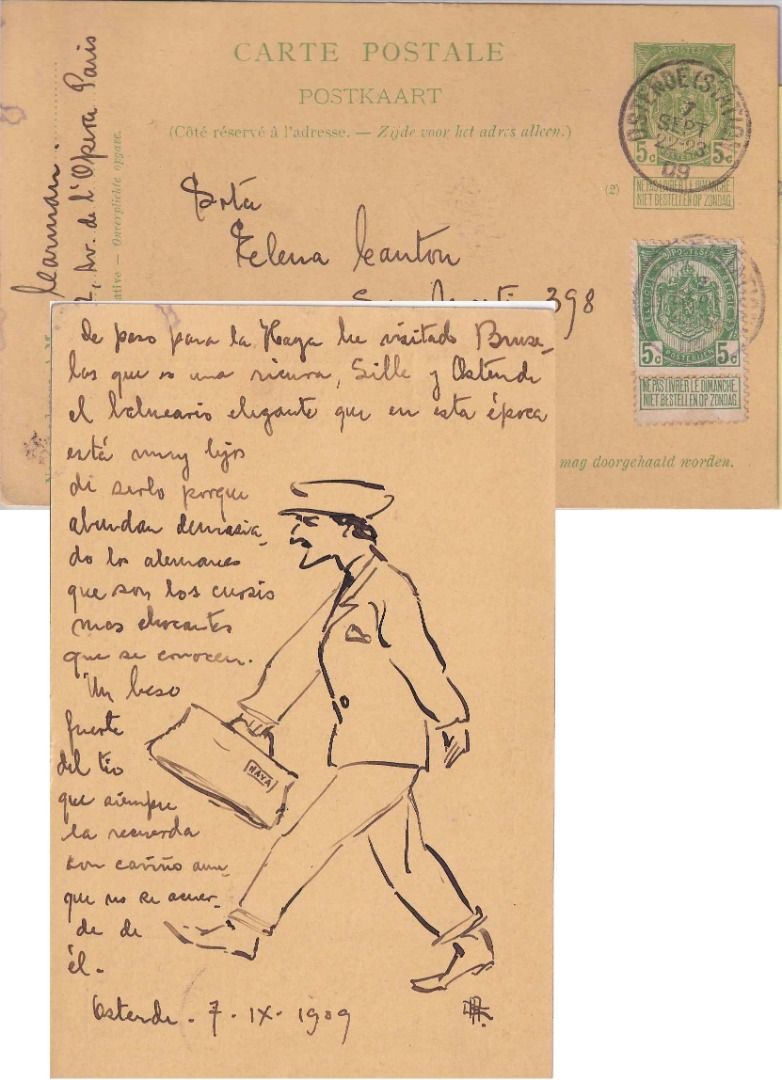 CARTE POSTALE
POSTKAART
(Côté réservé à l'adresse. — Zijde voor het adres alleen.)
OSTENDE (STATION)
7
SEPT
22-23
09
POSTES
5c 5c
POSTERIJEN
NE PAS LIVRER LE DIMANCHE.
NIET BESTELLEN OP ZONDAG.
(2)
Av. de l'Opera Paris
ative — Onverplichte opgave.
Srta
Elena Canton
398
BELGIQUE POSTES BELGIË
5c 5c
POSTERIJEN
NE PAS LIVRER LE DIMANCHE
NIET BESTELLEN OP ZONDAG
mag doorgehaald worden.
De paso para la Haya he visitado Bruse-
las que es una ricura, Lille y Ostende
el balneario elegante que en esta época
está muy lejos
de serlo porque
abundan demasia-
do los alemanes
que son los cursis
mas chocantes
que se conocen.
Un beso
fuerte
del tio
que siempre
la recuerda
con cariño aun-
que no se acuer-
de de
él.
HAYA
Ostende. 7-IX-1909